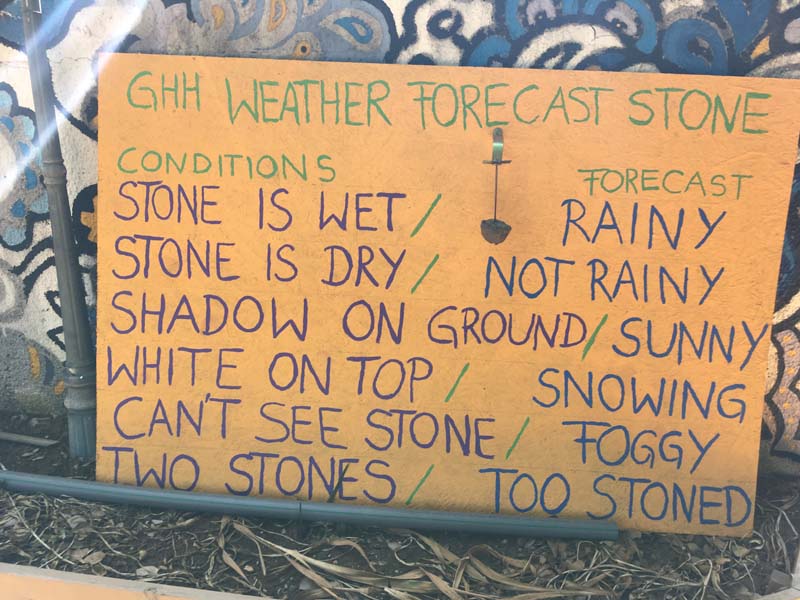 GHH WEATHER FORECAST STONE
CONDITIONS FORECAST
STONE IS WET / RAINY
STONE IS DRY / NOT RAINY
SHADOW ON GROUND / SUNNY
WHITE ON TOP / SNOWING
CAN'T SEE STONE / FOGGY
TWO STONES / TOO STONED